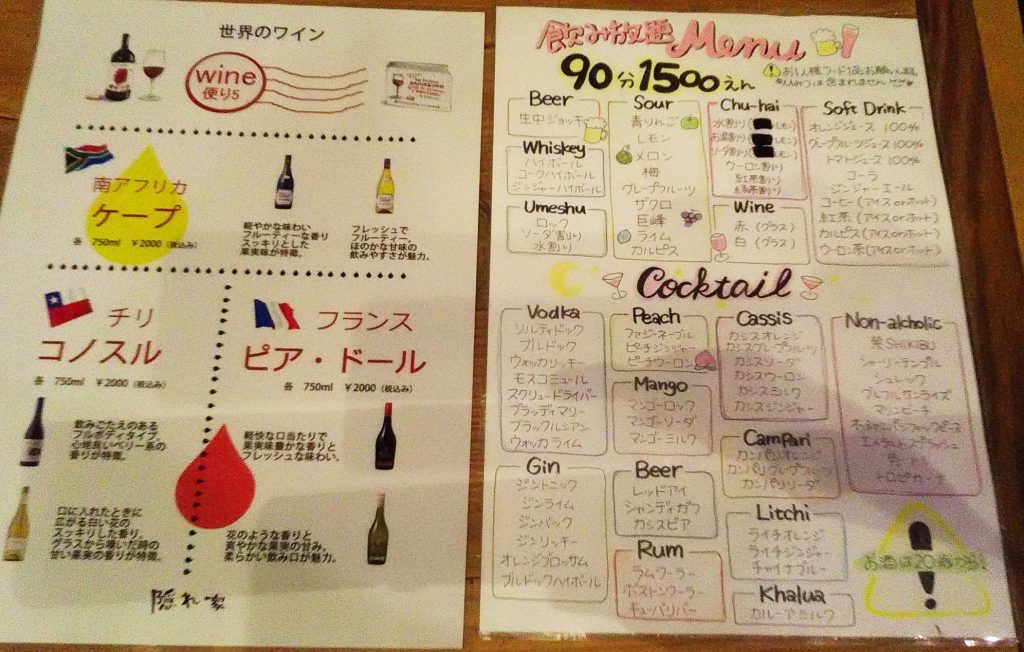 世界のワイン
wine
便り5
南アフリカ
ケープ
各 750ml ￥2000（税込み）
軽やかな味わい
フルーティーな香り
スッキリとした
果実味が特徴。
フレッシュで
フルーティー、
ほのかな甘味の
飲みやすさが魅力。
チリ
コノスル
各 750ml ￥2000（税込み）
飲みごたえのある
フルボディタイプ。
心地良いベリー系の
香りが特徴。
口に入れたときに
広がる白い花の
スッキリした香り。
グラスから漂いだ時の
甘い果実の香りが特徴。
フランス
ピア・ドール
各 750ml ￥2000（税込み）
軽快な口当たりで
果実味豊かな香りと
フレッシュな味わい。
花のような香りと
爽やかな果実の甘み。
柔らかい飲み口が魅力。
隠れ家
飲み放題 Menu
90分1500えん
お1人様フード1品お願いします。
Beer
生中ジョッキ
Whiskey
ハイボール
コークハイボール
ジンジャーハイボール
Umeshu
ロック
ソーダ割り
水割り
Sour
青りんご
レモン
メロン
梅
グレープフルーツ
ザクロ
巨峰
ライム
カルピス
Chu-hai
水割り（レモン）
お湯割り（レモン）
ソーダ割り（レモン）
ウーロン割り
紅茶割り
緑茶割り
Wine
赤（グラス）
白（グラス）
Soft Drink
オレンジジュース 100%
グレープフルーツジュース 100%
トマトジュース 100%
コーラ
ジンジャーエール
コーヒー（アイス or ホット）
紅茶（アイス or ホット）
カルピス（アイス or ホット）
ウーロン茶（アイス or ホット）
Cocktail
Vodka
ソルティドッグ
ブルドック
ウォッカリッキー
モスコミュール
スクリュードライバー
ブラッディマリー
ブラックルシアン
ウォッカライム
Gin
ジントニック
ジンライム
ジンバック
ジンリッキー
オレンジブロッサム
ブルドックハイボール
Peach
ファジーネーブル
ピーチジンジャー
ピーチウーロン
Mango
マンゴーロック
マンゴーソーダ
マンゴーミルク
Beer
レッドアイ
シャンディガフ
カシスビア
Rum
ラムクーラー
ボストンクーラー
キューバリバー
Cassis
カシスオレンジ
カシスグレープフルーツ
カシスソーダ
カシスウーロン
カシスミルク
カシスジンジャー
Campari
カンパリオレンジ
カンパリグレープフルーツ
カンパリソーダ
Litchi
ライチオレンジ
ライチジンジャー
チャイナブルー
Khalua
カルーアミルク
Non-alcholic
紫SHIKIBU
シャーリーテンプル
シュレック
グレフルサンライズ
マリンビーチ
お酒は20歳から!